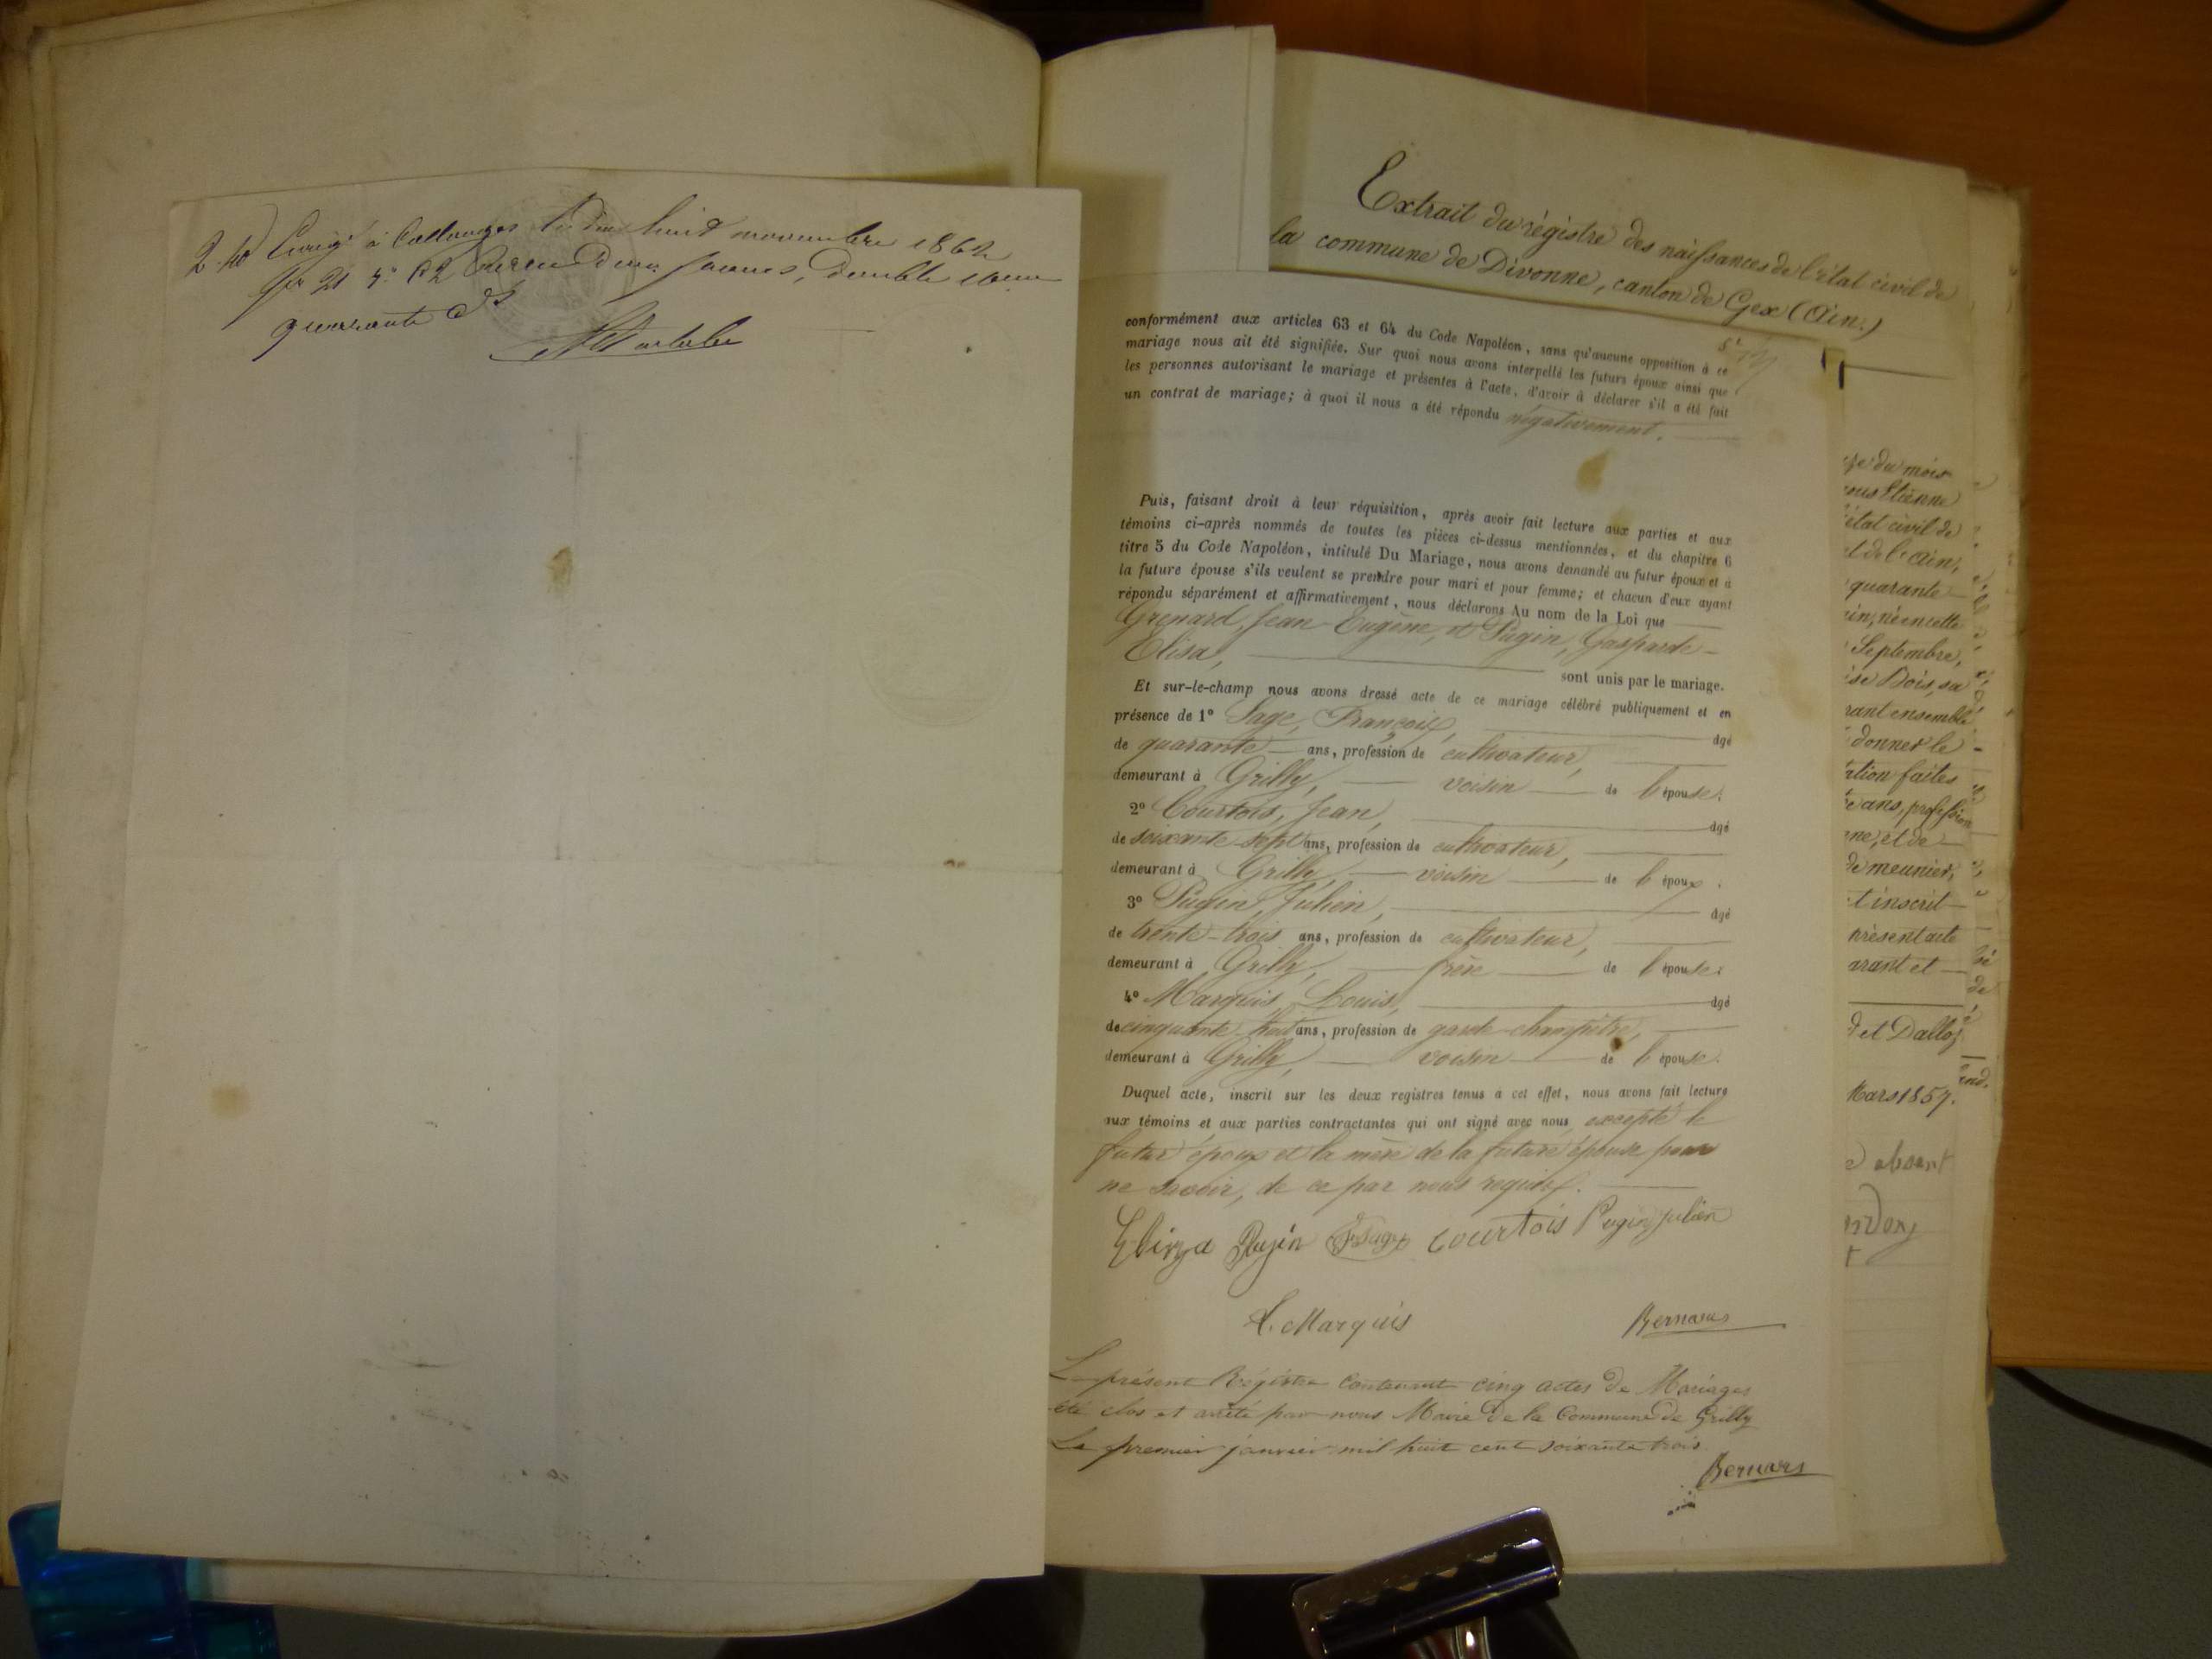 2.40 Enregé à Collonges le dix huit novembre 1862
fo 21 Vo C2 Reçu Deux francs, double décime
quarante Cs
Extrait du régistre des naissances de l'état civil de
la commune de Divonne, canton de Gex (Ain.)
conformément aux articles 63 et 64 du Code Napoléon, sans qu'aucune opposition à ce
mariage nous ait été signifiée. Sur quoi nous avons interpellé les futurs époux ainsi que
les personnes autorisant le mariage et présentes à l'acte, d'avoir à déclarer s'il a été fait
un contrat de mariage; à quoi il nous a été répondu négativement.
Puis, faisant droit à leur réquisition, après avoir fait lecture aux parties et aux
témoins ci-après nommés de toutes les pièces ci-dessus mentionnées, et du chapitre 6
titre 5 du Code Napoléon, intitulé Du Mariage, nous avons demandé au futur époux et à
la future épouse s'ils veulent se prendre pour mari et pour femme; et chacun d'eux ayant
répondu séparément et affirmativement, nous déclarons Au nom de la Loi que
Grenard, Jean-Eugène, et Pugin, Gasparde-
Elisa, sont unis par le mariage.
Et sur-le-champ nous avons dressé acte de ce mariage célébré publiquement et en
présence de 1° Sage, François, âgé
de quarante ans, profession de cultivateur,
demeurant à Grilly, voisin de l'épouse.
2° Courtois, Jean, âgé
de soixante-sept ans, profession de cultivateur,
demeurant à Grilly, voisin de l'époux.
3° Pugin, Julien, âgé
de trente-trois ans, profession de cultivateur,
demeurant à Grilly, frère de l'épouse.
4° Marquis, Louis, âgé
de cinquante-huit ans, profession de garde-champêtre,
demeurant à Grilly, voisin de l'épouse.
Duquel acte, inscrit sur les deux registres tenus à cet effet, nous avons fait lecture
aux témoins et aux parties contractantes qui ont signé avec nous excepté le
futur époux et la mère de la future épouse pour
ne savoir, de ce par nous requis.
Elinza Pugin F. Sage courtois Pugin Julien
L. Marquis Bernard
Le présent Régistre contenant cinq actes de Mariages
été clos et arrêté par nous Maire de la Commune de Grilly
Le premier janvier mil huit cent soixante trois.
Bernard
du mois
Etienne
état civil de
et de l'Ain,
quarante
née en cette
Septembre,
Bois, sa
ensemble
donner le
faites
ans, profession
et de
de meunier,
inscrit
présent acte
et
et Dalloz
Mars 1857.
absent